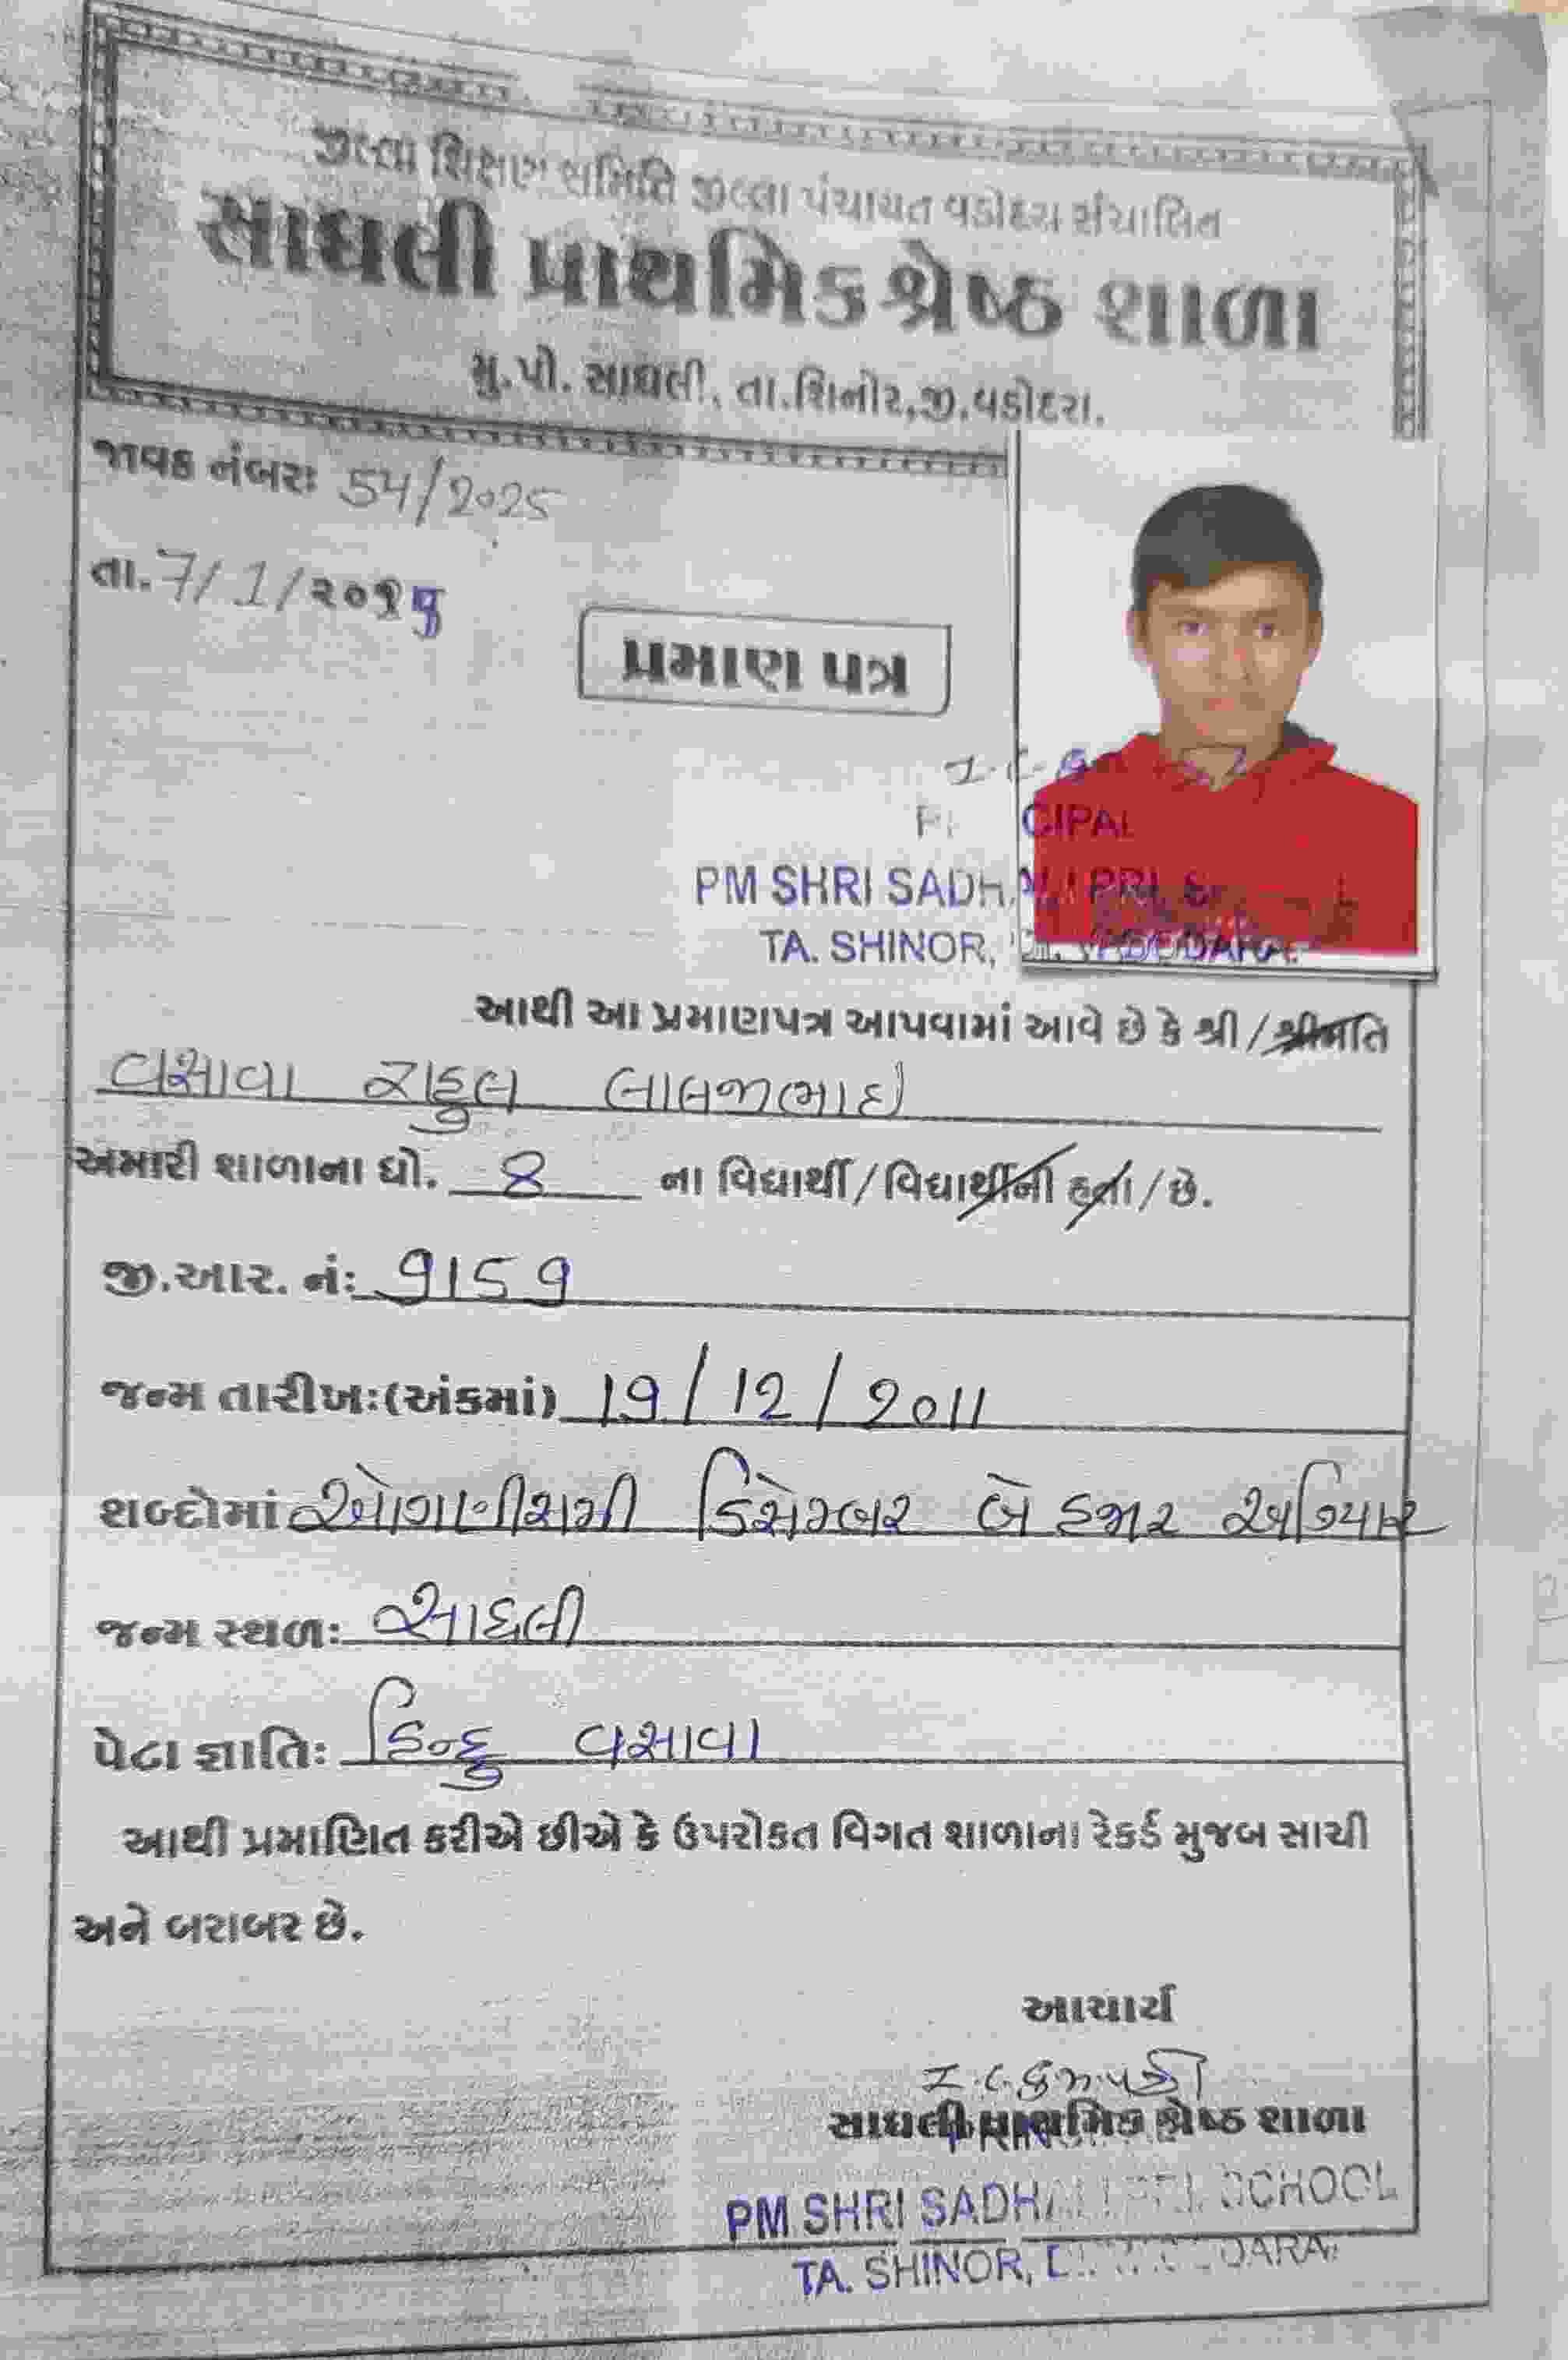 જીલ્લા શિક્ષણ સમિતિ જીલ્લા પંચાયત વડોદરા સંચાલિત
સાધલી પ્રાથમિક શ્રેષ્ઠ શાળા
મુ.પો. સાધલી, તા.શિનોર,જી.વડોદરા.
જાવક નંબરઃ 54/2025
તા. 7/1/૨૦૨૫
પ્રમાણ પત્ર
CIPAL
PM SHRI SADHALI PRI.
TA. SHINOR, DI. VADODARA.
આથી આ પ્રમાણપત્ર આપવામાં આવે છે કે શ્રી/શ્રીમતિ
વસાવા રાહુલ લાલજીભાઈ
અમારી શાળાના ધો. 8 ના વિદ્યાર્થી/વિદ્યાર્થીની હતા/છે.
જી.આર. નંઃ 9159
જન્મ તારીખઃ(અંકમાં) 19/12/2011
શબ્દોમાં ઓગણીસમી ડિસેમ્બર બે હજાર અગિયાર
જન્મ સ્થળઃ સાધલી
પેટા જ્ઞાતિઃ હિન્દુ વસાવા
આથી પ્રમાણિત કરીએ છીએ કે ઉપરોકત વિગત શાળાના રેકર્ડ મુજબ સાચી
અને બરાબર છે.
આચાર્ય
સાધલી પ્રાથમિક શ્રેષ્ઠ શાળા
PM SHRI SADHALI PRI. SCHOOL
TA. SHINOR, DI. VADODARA.